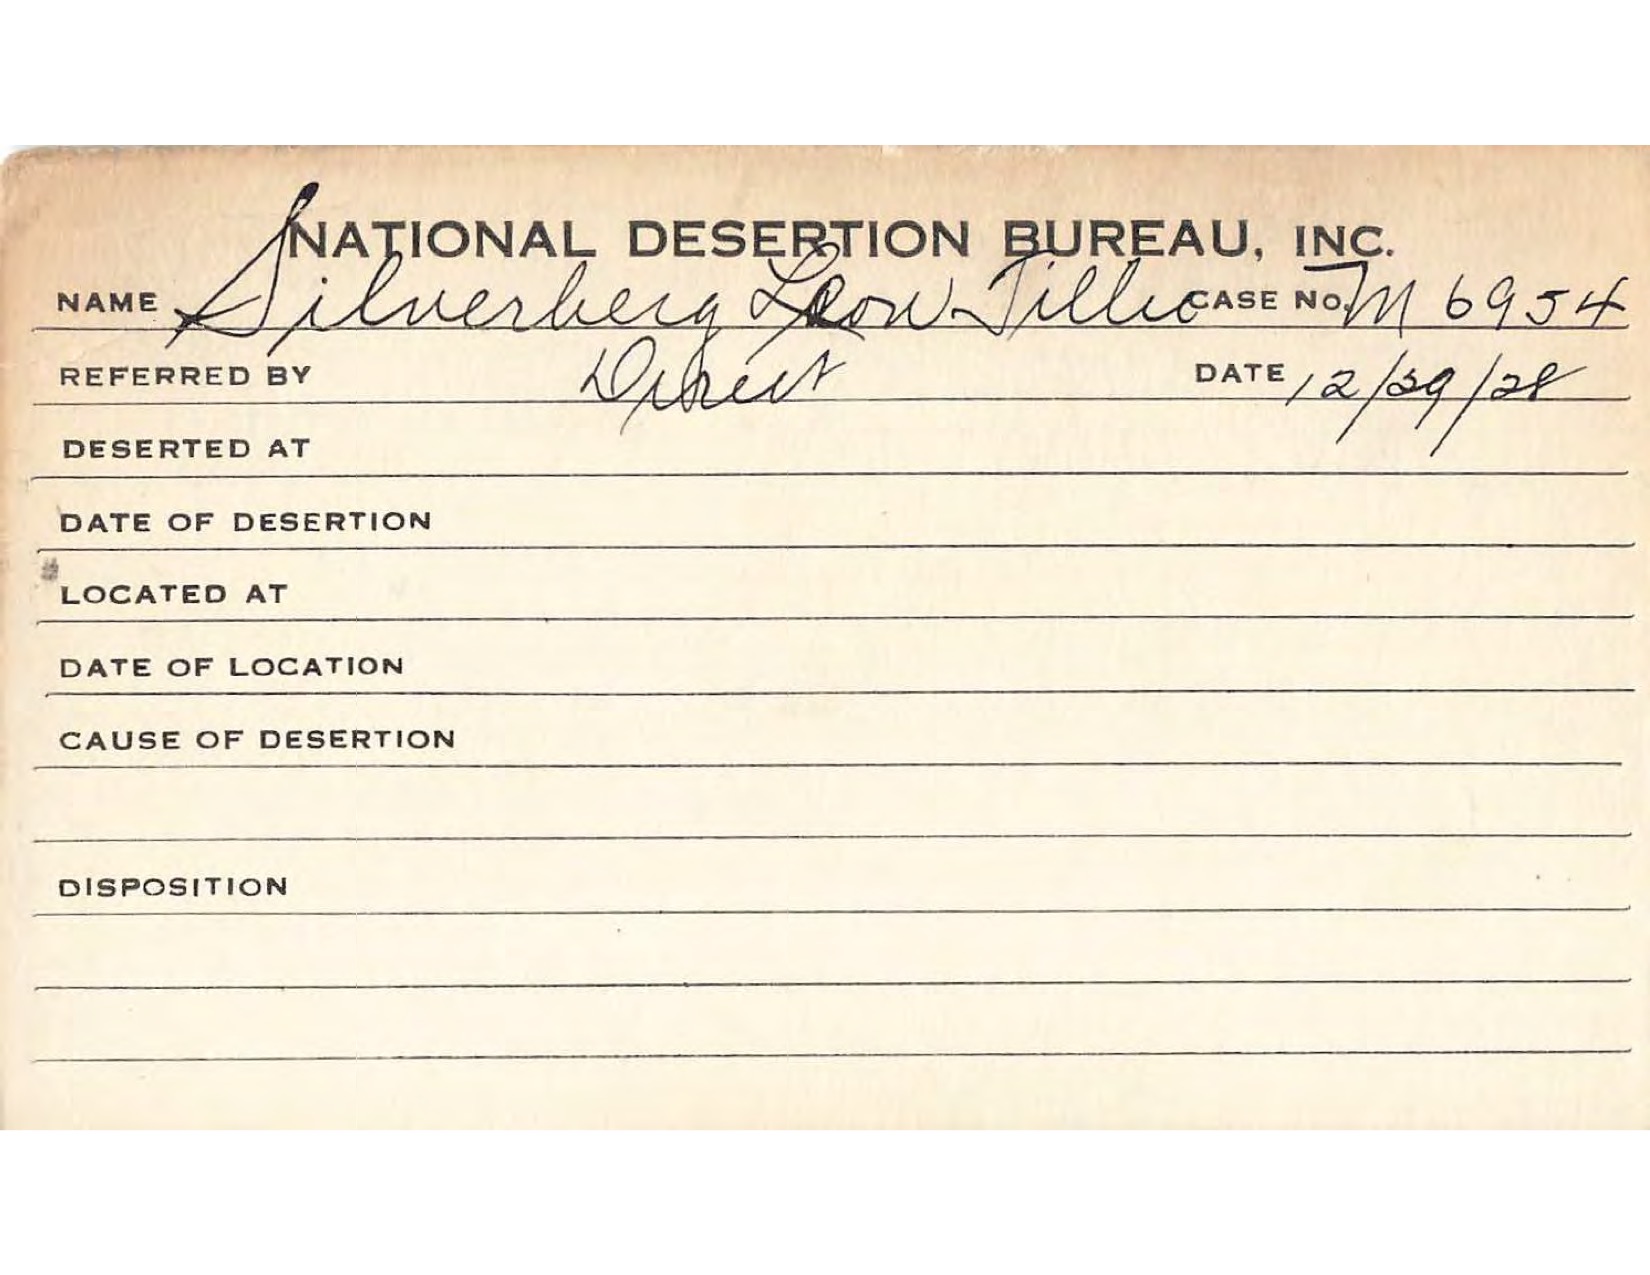 NATIONAL DESERTION BUREAU, INC.
NAME Silverberg Leon Tillie CASE No. M 6954
REFERRED BY Direct DATE 12/29/28
DESERTED AT
DATE OF DESERTION
LOCATED AT
DATE OF LOCATION
CAUSE OF DESERTION
DISPOSITION